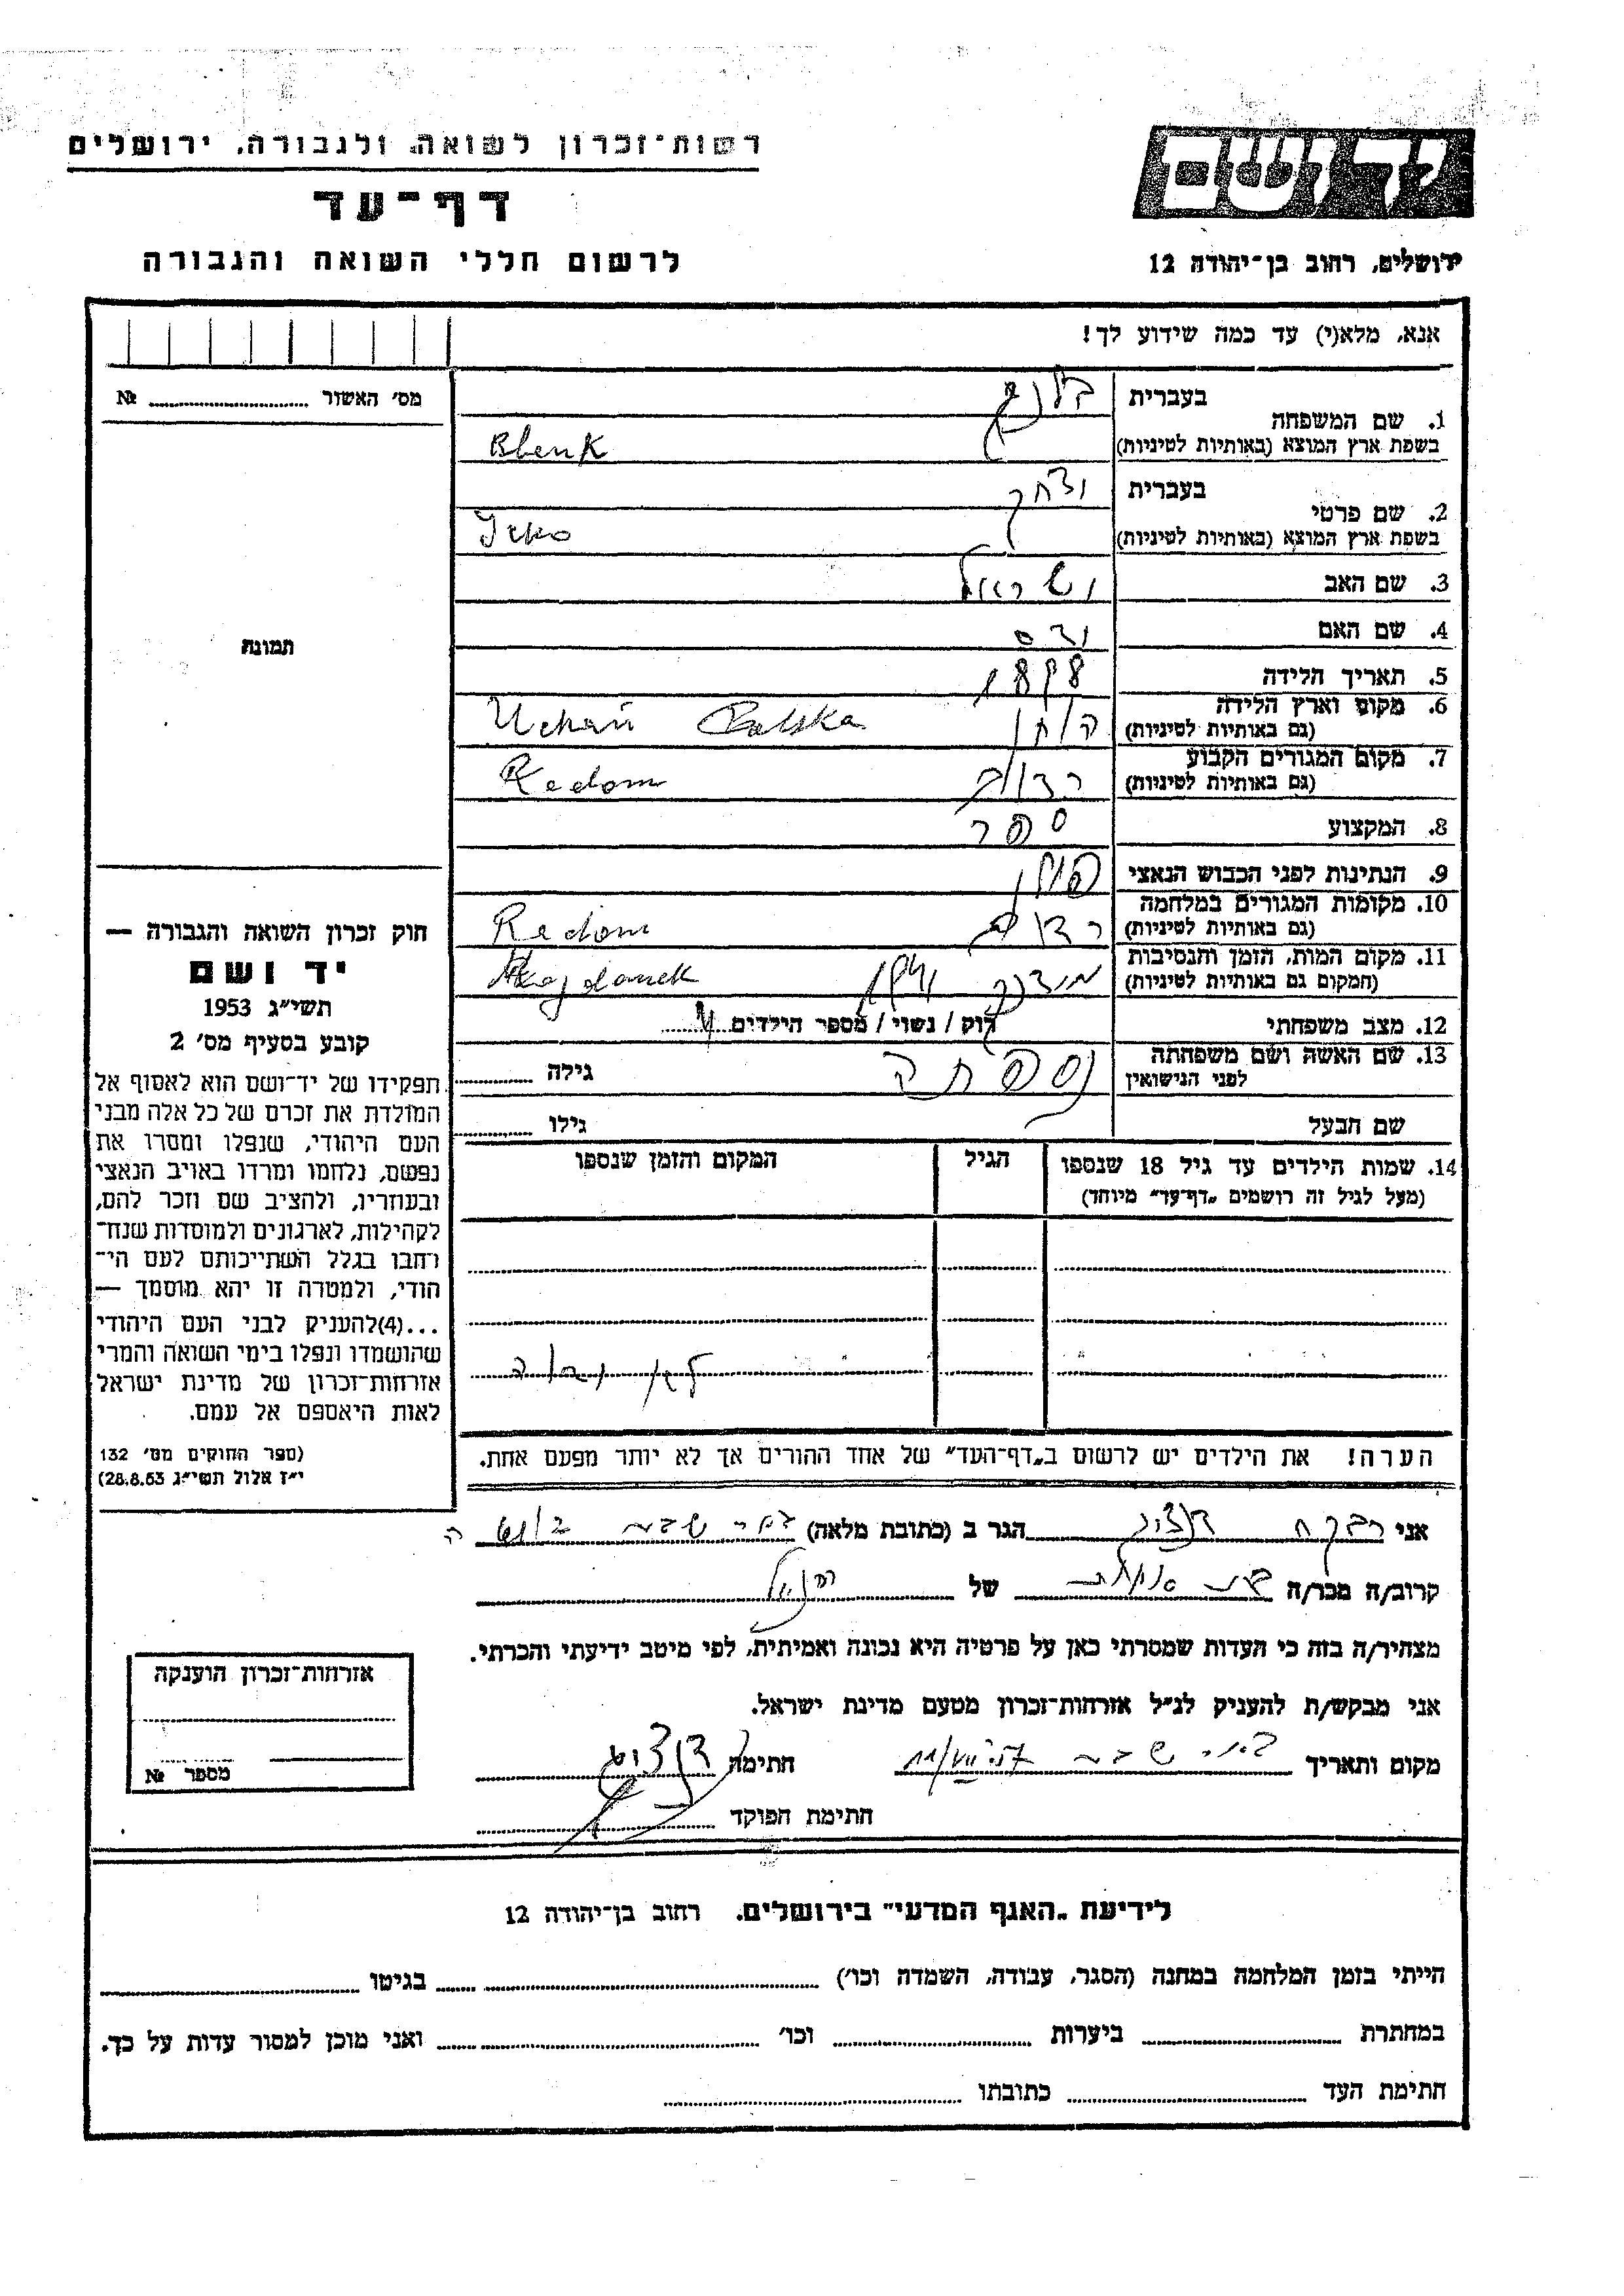 רשות־זכרון לשואה ולגבורה, ירושלים
ידושם
דף־עד
לרשום חללי השואה והגבורה
ירושלים, רחוב בן־יהודה 12
אנא, מלא(י) עד כמה שידוע לך!
מס' האשור № 
תמונה
1. שם המשפחה
בעברית
בשפת ארץ המוצא (באותיות לטיניות) Blenk
2. שם פרטי
בעברית יצחק
בשפת ארץ המוצא (באותיות לטיניות)
3. שם האב ישראל
4. שם האם
5. תאריך הלידה
6. מקום וארץ הלידה
(גם באותיות לטיניות) Uchań Polska
7. מקום המגורים הקבוע
(גם באותיות לטיניות) רדום Radom
8. המקצוע ספר
9. הנתינות לפני הכבוש הנאצי פולין
10. מקומות המגורים במלחמה
(גם באותיות לטיניות) רדום Radom
11. מקום המות, הזמן והנסיבות
(המקום גם באותיות לטיניות) Majdanek
12. מצב משפחתי רוק / נשוי / מספר הילדים
13. שם האשה ושם משפחתה
לפני הנישואין גילה
שם הבעל גילו
14. שמות הילדים עד גיל 18 שנספו
(מעל לגיל זה רושמים „דף־עד" מיוחד)
הגיל
המקום והזמן שנספו
הערה! את הילדים יש לרשום ב„דף־העד" של אחד ההורים אך לא יותר מפעם אחת.
חוק זכרון השואה והגבורה —
יד ושם
תשי״ג 1953
קובע בסעיף מס' 2
תפקידו של יד־ושם הוא לאסוף אל
המולדת את זכרם של כל אלה מבני
העם היהודי, שנפלו ומסרו את
נפשם, נלחמו ומרדו באויב הנאצי
ובעוזריו, ולהציב שם וזכר להם,
לקהילות, לארגונים ולמוסדות שנח־
רחבו בגלל השתייכותם לעם הי־
הודי, ולמטרה זו יהא מוסמך —
...(4)להעניק לבני העם היהודי
שהושמדו ונפלו בימי השואה והמרי
אזרחות־זכרון של מדינת ישראל
לאות היאספם אל עמם.
(ספר החוקים מס' 132
י״ז אלול תשי״ג 28.8.53)
אני רבקה הגר ב (כתובת מלאה) באר שבע
קרוב/ה מכר/ה של
מצהיר/ה בזה כי העדות שמסרתי כאן על פרטיה היא נכונה ואמיתית, לפי מיטב ידיעתי והכרתי.
אני מבקש/ת להעניק לנ״ל אזרחות־זכרון מטעם מדינת ישראל.
מקום ותאריך באר שבע חתימה
חתימת הפוקד
אזרחות־זכרון הוענקה
מספר №
לידיעת „האגף המדעי" בירושלים, רחוב בן־יהודה 12
הייתי בזמן המלחמה במחנה (הסגר, עבודה, השמדה וכו') בגיטו
במחתרת ביערות וכו' ואני מוכן למסור עדות על כך.
חתימת העד כתובתו